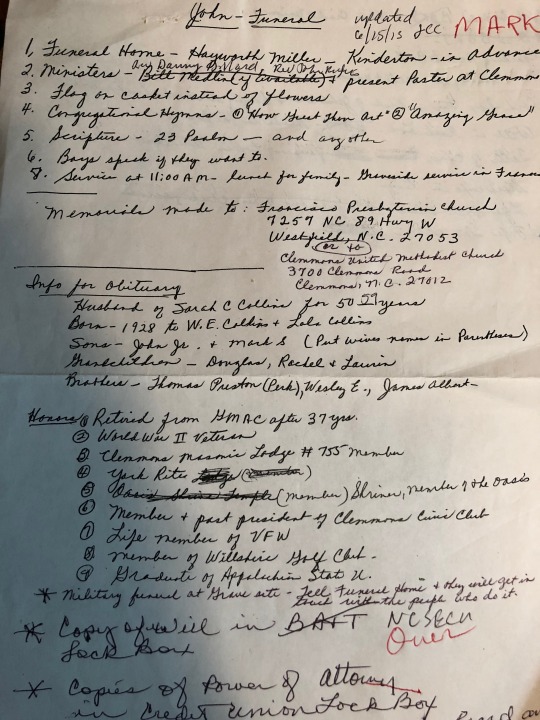 John - Funeral
updated
6/15/15 JCC MARK
1, Funeral Home - Hayworth Miller - Kinderton - in Advance
2. Ministers - Danny Rev. John
Bill Medlin (if available) & present Pastor at Clemmons
3. Flag on casket instead of flowers
4. Congregational Hymns - ① How Great Thou Art" ② "Amazing Grace"
5. Scripture - 23 Psalm - and any other
6. Boys speak if they want to.
8. Service at 11:00 AM - lunch for family - Graveside service in Francis
Memorials made to: Francisco Presbyterian Church
7257 NC 89 Hwy W
Westfield, N.C. 27053
or to
Clemmons United Methodist Church
3700 Clemmons Road
Clemmons, N.C. 27012
Info for Obituary
Husband of Sarah C Collins for 50 59 years
Born - 1928 to W.E. Collins & Lola Collins
Sons - John Jr. & Mark S (Put wives names in Parentheses)
Grandchildren - Douglas, Rachel & Laurin
Brothers - Thomas Preston (Perk), Wesley E., James Albert
Honors ① Retired from GMAC after 37 yrs.
② World War II Veteran
③ Clemmons Masonic Lodge # 755 Member
④ York Rite Lodge (member)
⑤ Oasis Shrine Temple (member) Shriner, member of the Oasis
⑥ Member & past president of Clemmons Civic Club
⑦ Life member of VFW
⑧ Member of Willshire Golf Club -
⑨ Graduate of Appalachian Stat U.
* Military funeral at Grave site - Tell Funeral Home & they will get in
touch with the people who do it.
* Copy of Will in BB&T NCSECU
Lock Box Over
* Copies of Power of attorney
in Credit Union Lock Box